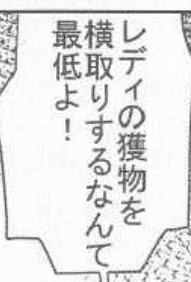 レディの獲物を
横取りするなんて
最低よ！